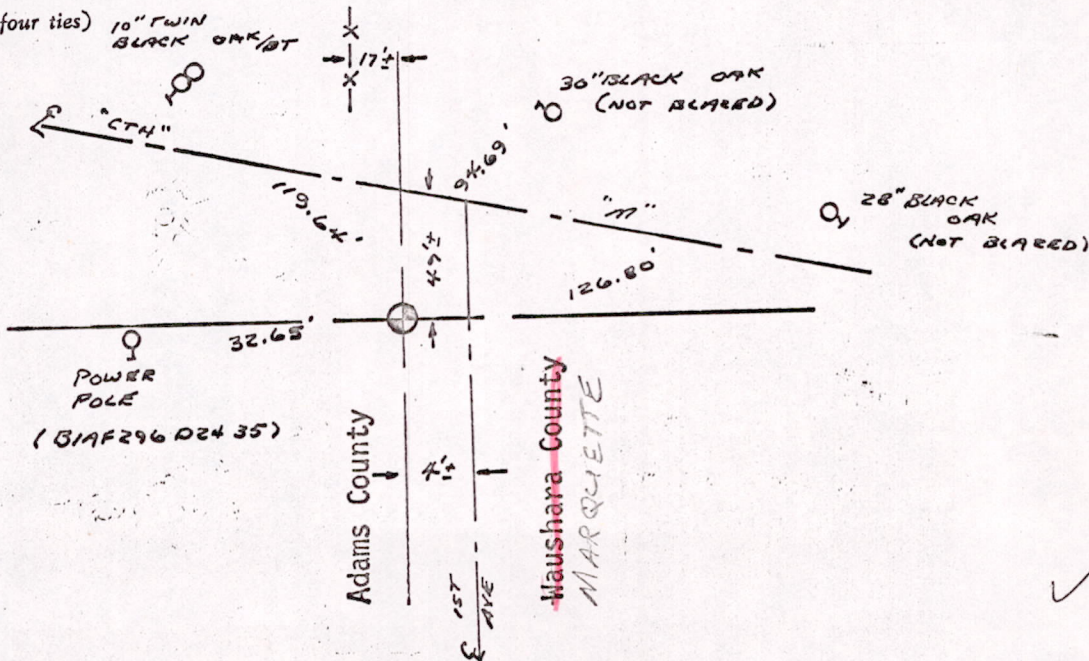 four ties)
10" TWIN
BLACK OAK/BT
17'±
30" BLACK OAK
(NOT BLAZED)
"CTH"
94.69'
119.64'
"M"
28" BLACK
OAK
(NOT BLAZED)
49'±
126.80'
32.65'
POWER
POLE
(B1AF296 D24 35)
Adams County
4'±
1ST
AVE
Waushara County
MARQUETTE